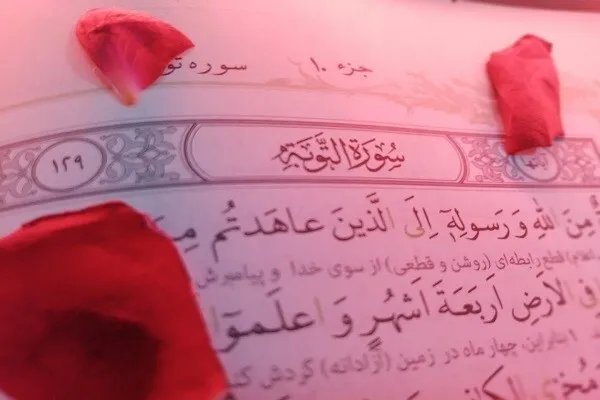 جزء ۱۰ سوره تو
۱۲۹ سُورَةُ التَّوْبَةِ
مِنَ اللهِ وَ رَسولِهٖٓ اِلَى الَّذينَ عاهَدتُم مِنَ
قطع رابطه‌ای (روشن و قطعی) از سوی خدا و پیامبرش
فِی الاَرضِ اَربَعَةَ اَشهُرٍ وَ اعلَموٓا
بنابراین، چهار ماه در زمین (آزادانه) گردش کنید
مُخزِی الکا